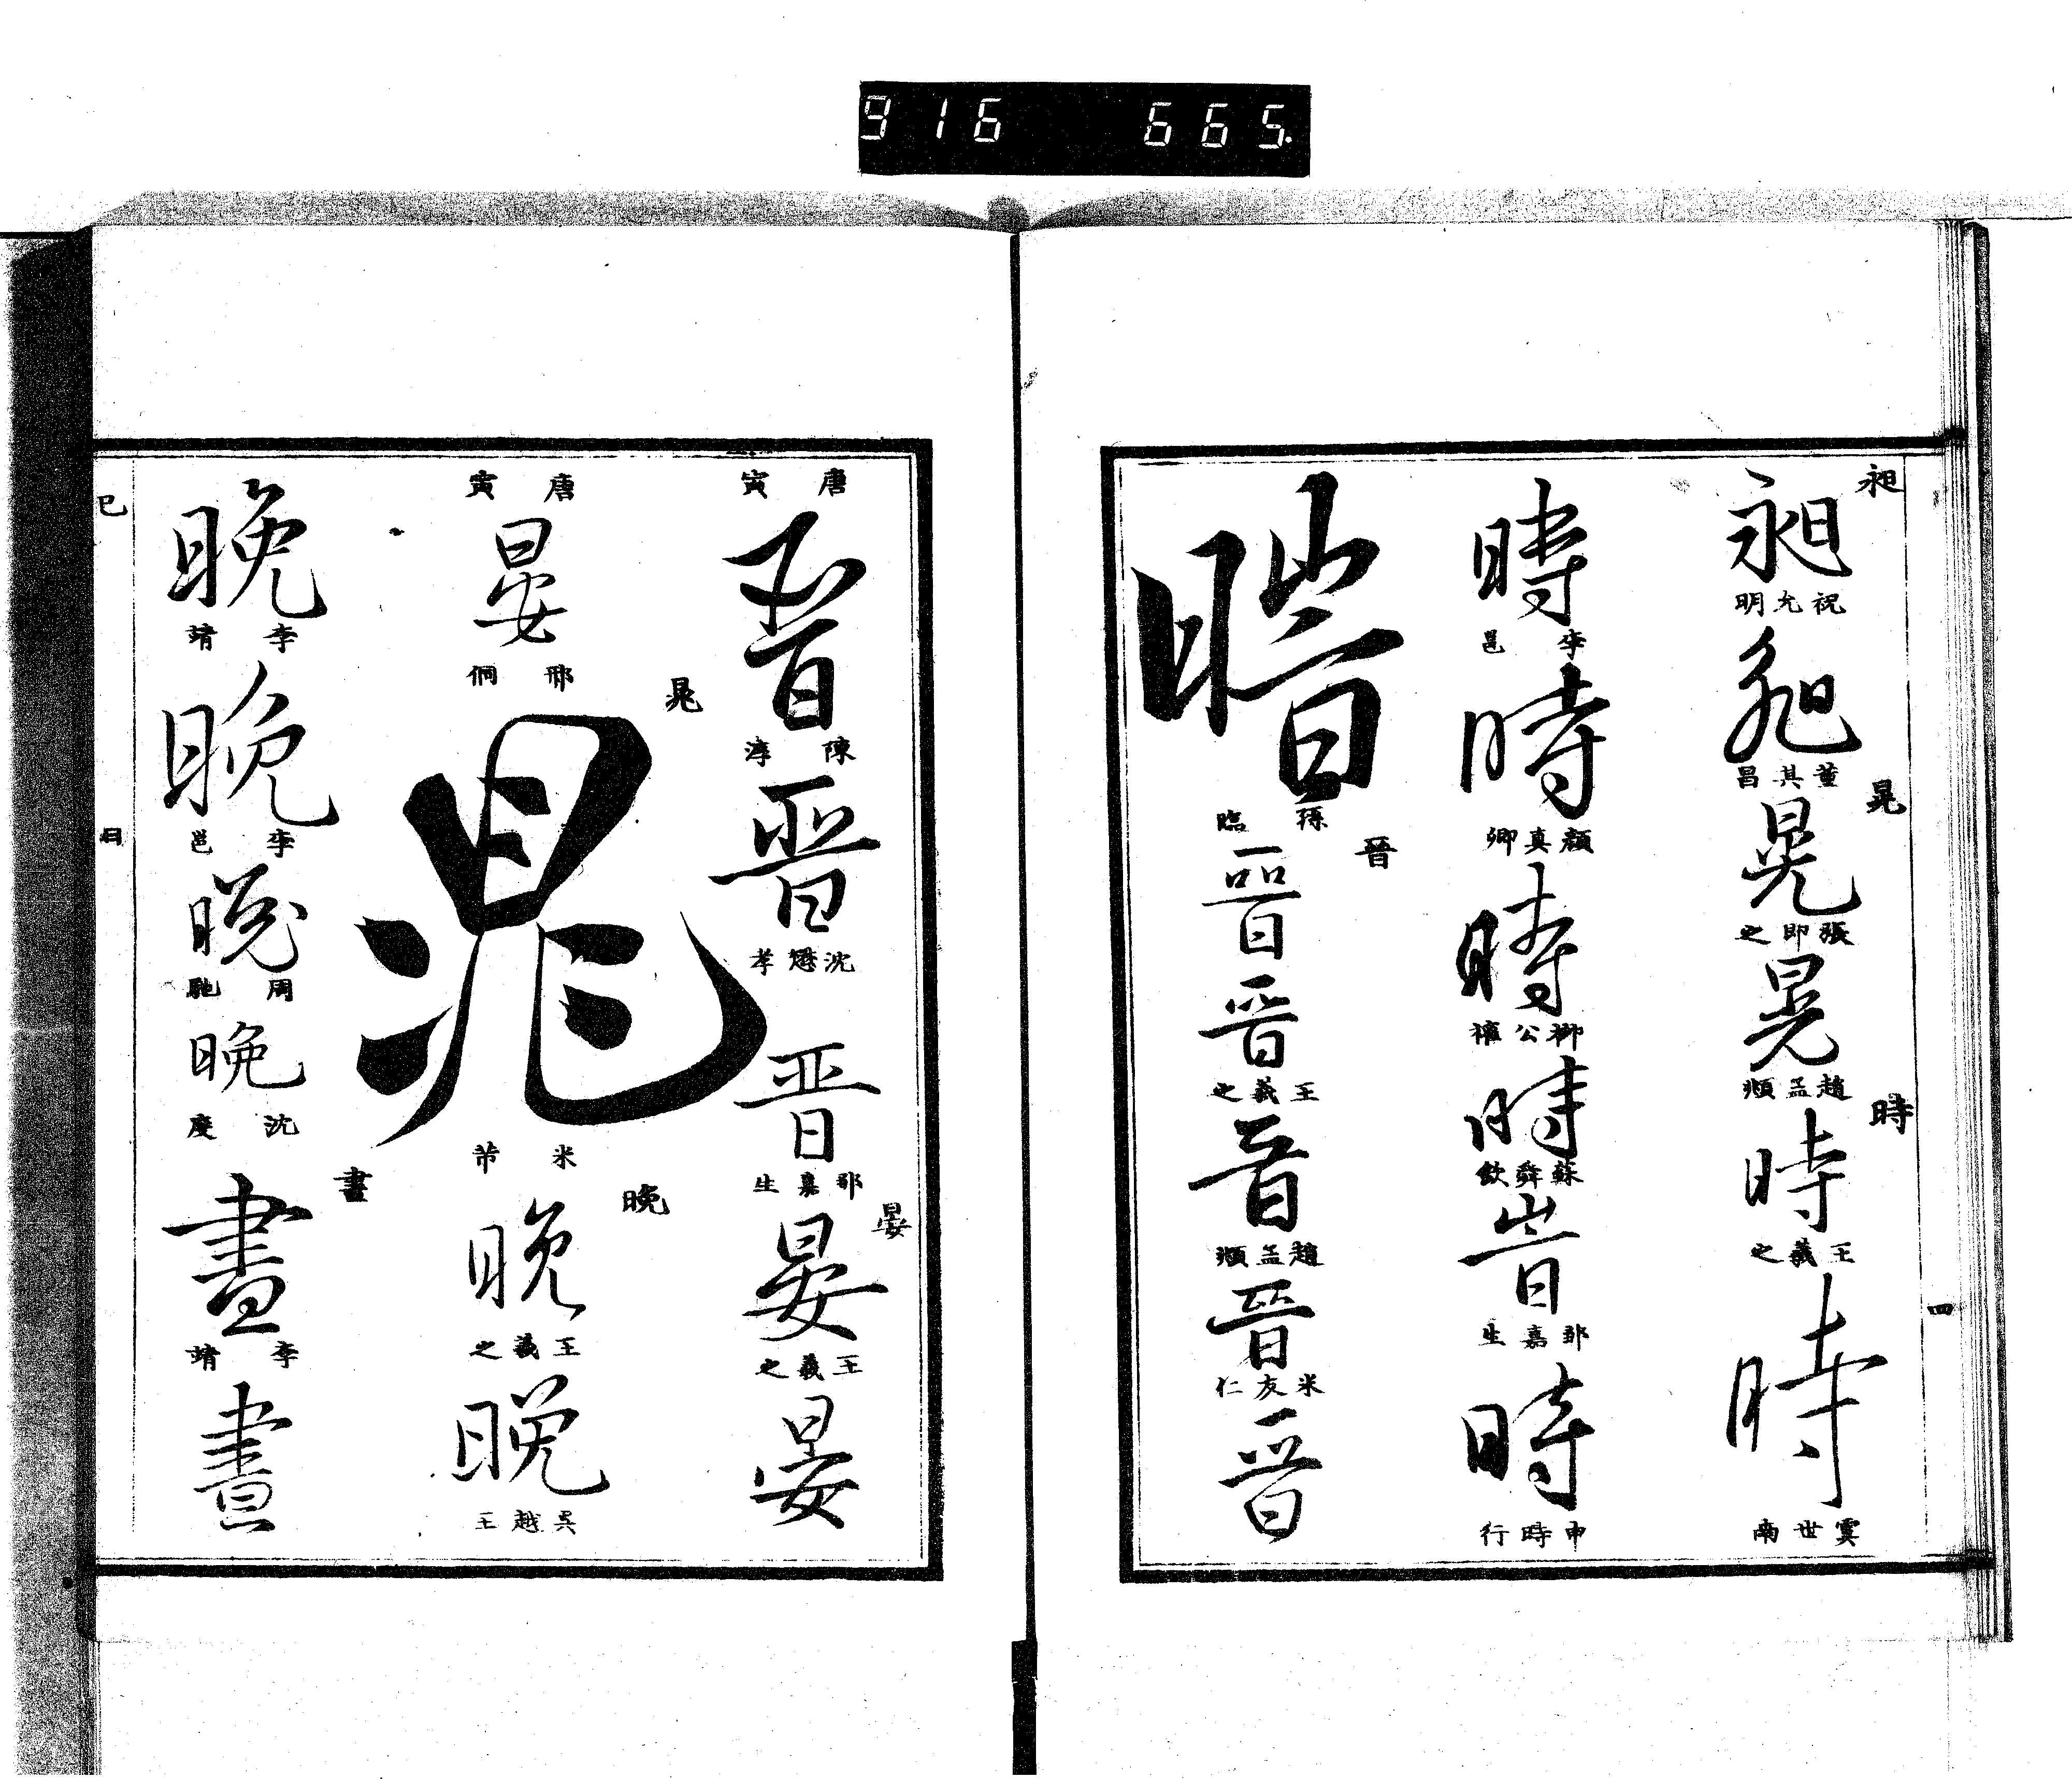 916 665.
昶
昶
祝允明
昶
董其昌
晃
晃
張即之
晃
趙孟頫
時
時
王羲之
時
虞世南
四
時
李邕
時
顏真卿
時
柳公權
時
蘇舜欽
旹
邢嘉生
時
申時行
孫臨
晉
晉
晉
王羲之
晉
趙孟頫
晉
米友仁
晉
唐寅
晉
陳淳
晉
沈懋孝
晋
邢嘉生
晏
晏
王羲之
晏
唐寅
晏
邢侗
晁
晁
米芾
晚
晚
王羲之
晚
吳越王
晚
李靖
晚
李邕
晚
周馳
晚
沈慶
晝
晝
李靖
晝
巳
日